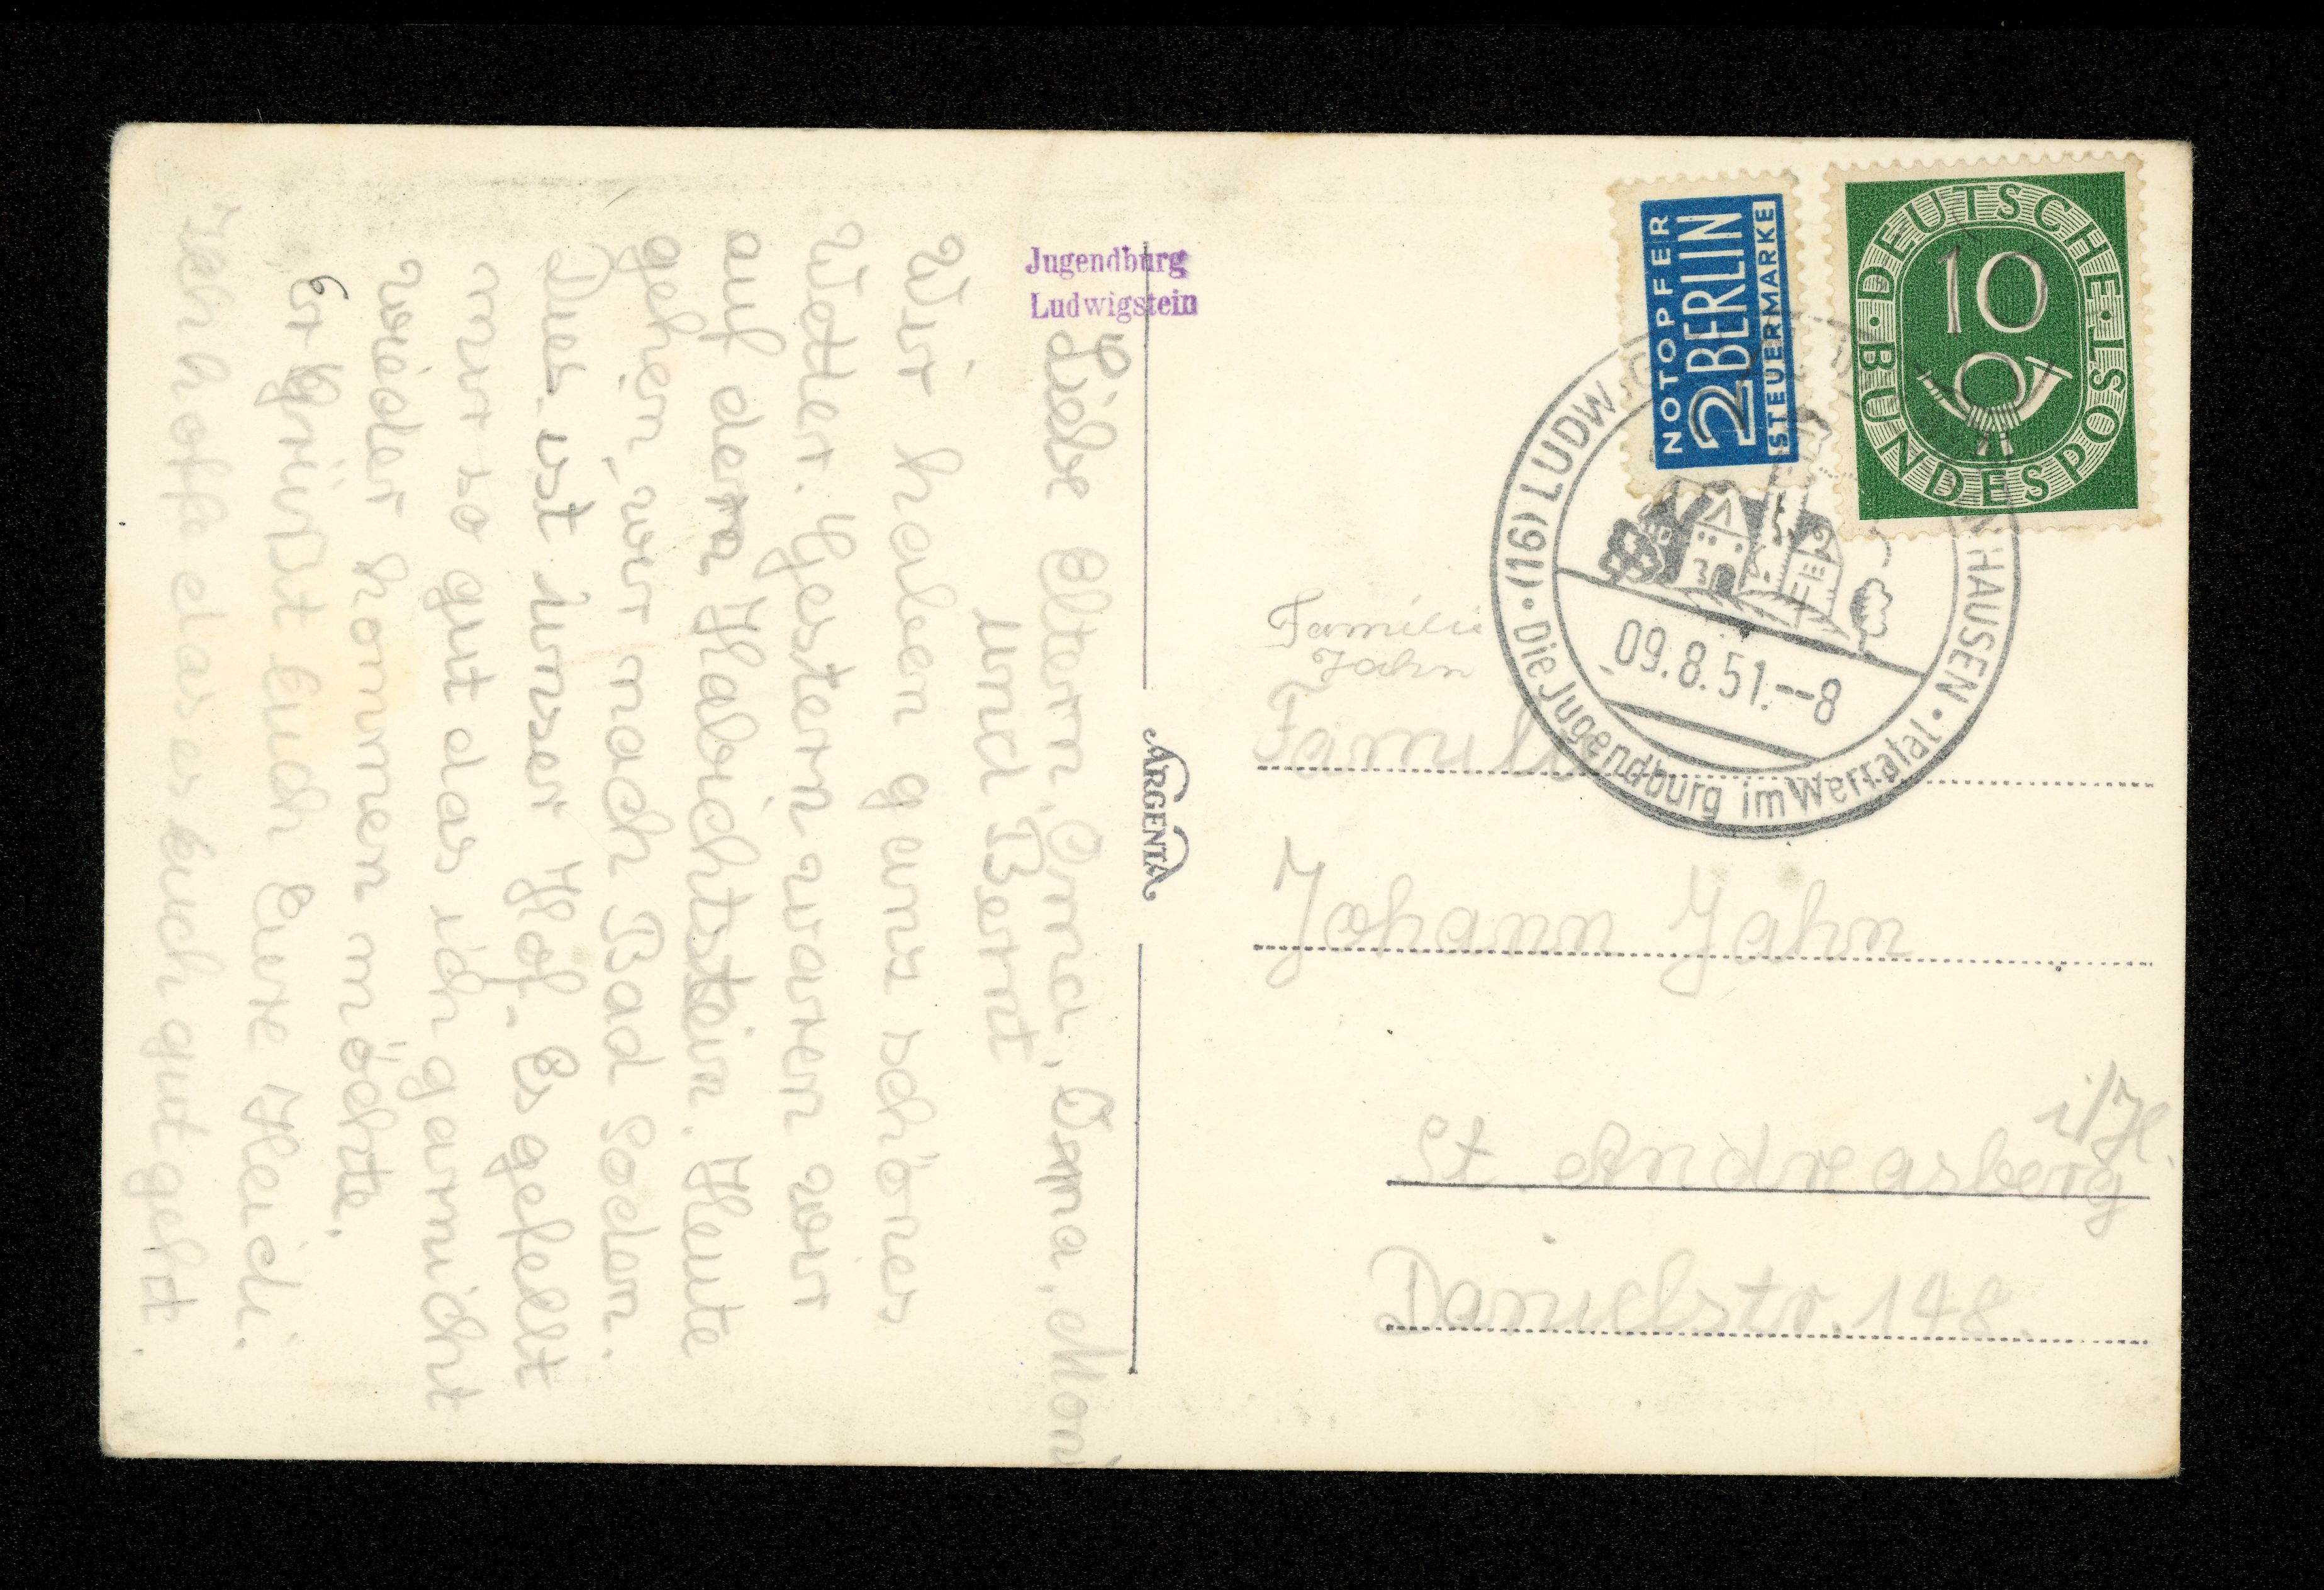 Jugendburg
Ludwigstein
Liebe Eltern, Oma, Moni
und Bernt
Wir haben ganz schönes
Wetter. Gestern waren wir
auf dem Habichtstein. Heute
gehen, wir nach Bad Soden.
Dies ist unser Hof. Es gefellt
mir so gut das ich garnicht
wieder kommen möchte.
Er grüßt Euch Eure Heidi.
Ich hoffe das es euch gut geht.
ARGENTA
NOTOPFER
2 BERLIN
STEUERMARKE
DEUTSCHE BUNDESPOST
10
(16) LUDW HAUSEN
09.8.51.--8
Die Jugendburg im Werratal
Familie
Jahn
Familie
Johann Jahn
St. Andreasberg
i/H.
Danielstr. 148.